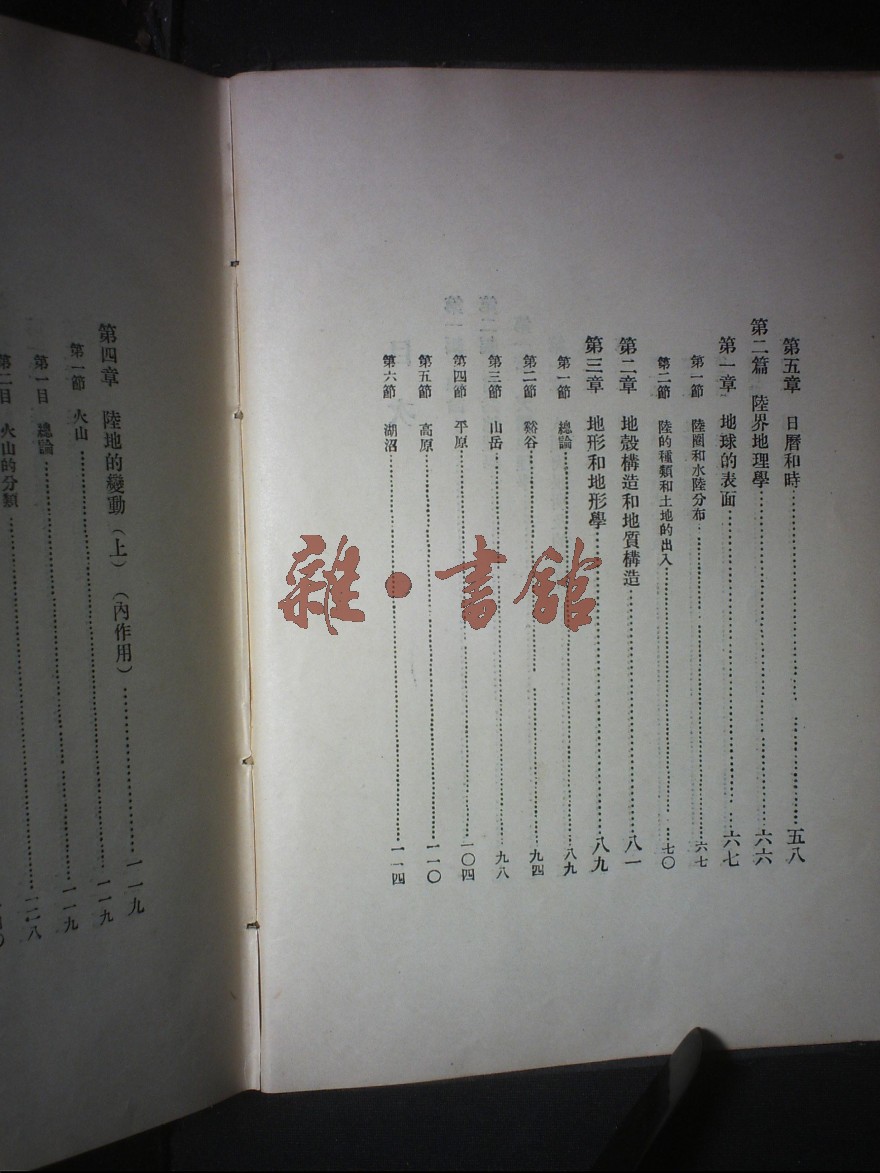 第五章 日曆和時…………五八
第二篇 陸界地理學…………六六
第一章 地球的表面…………六七
第一節 陸圈和水陸分布…………六七
第二節 陸的種類和土地的出入…………七〇
第二章 地殼構造和地質構造…………八一
第三章 地形和地形學…………八九
第一節 總論…………八九
第二節 谿谷…………九四
第三節 山岳…………九八
第四節 平原…………一〇四
第五節 高原…………一一〇
第六節 湖沼…………一一四
雜·書館
第四章 陸地的變動(上)(內作用)…………一一九
第一節 火山…………一一九
第一目 總論…………一一九
第二目 火山的分類…………